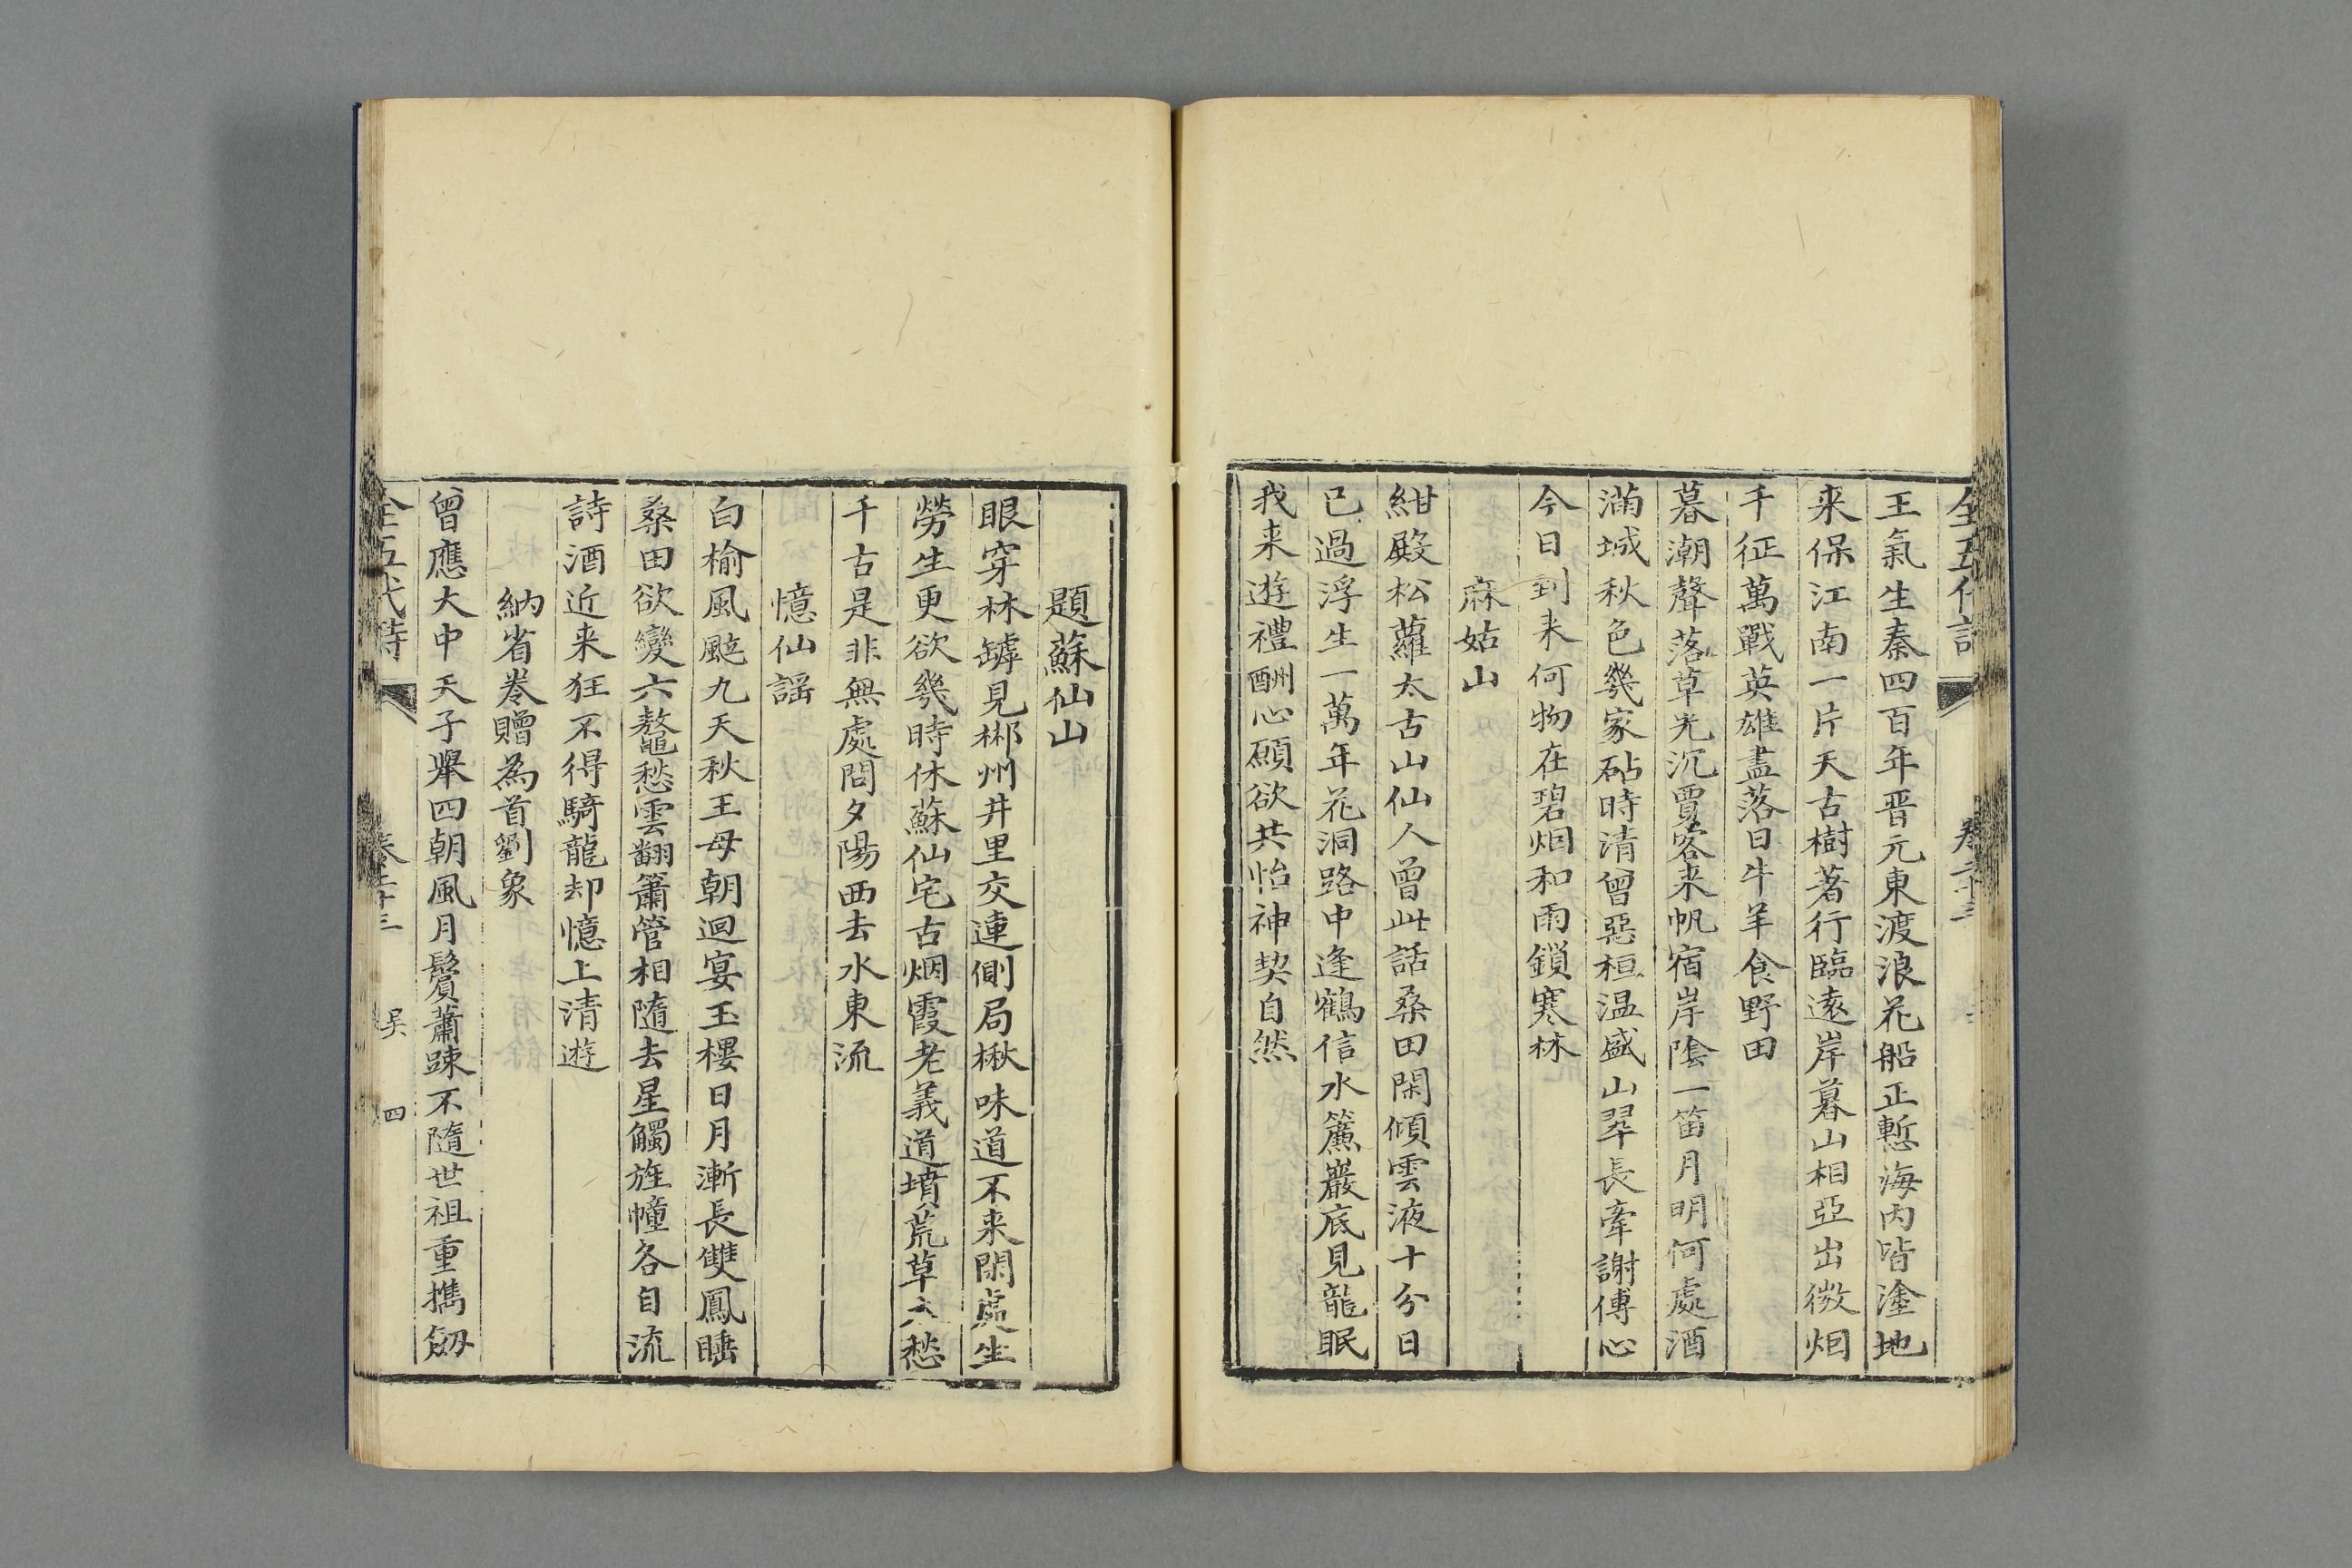 全五代詩 卷二十三
王氣生秦四百年晋元東渡浪花船正慙海内皆塗地
来保江南一片天古樹著行臨遠岸暮山相亞出微烟
千征萬戰英雄盡落日牛羊食野田
暮潮聲落草光沉賈客来帆宿岸陰一笛月明何處酒
滿城秋色幾家砧時清曾惡桓温盛山翠長牽謝傅心
今日到来何物在碧烟和雨鎖寒林
麻姑山
紺殿松蘿太古山仙人曾此話桑田閑傾雲液十分日
已過浮生一萬年花洞路中逢鶴信水簾巖底見龍眠
我来遊禮酬心願欲共怡神契自然
題蘇仙山
眼穿林罅見郴州井里交連側局楸味道不来閑處坐
勞生更欲幾時休蘇仙宅古烟霞老義道墳荒草木愁
千古是非無處問夕陽西去水東流
憶仙謡
白榆風颭九天秋王母朝迴宴玉樓日月漸長雙鳳睡
桑田欲變六鼇愁雲翻簫管相隨去星觸旌幢各自流
詩酒近来狂不得騎龍却憶上清遊
納省卷贈為首劉象
曾應大中天子舉四朝風月鬢蕭踈不隨世祖重攜劒
全五代詩 卷二十三 吴 四